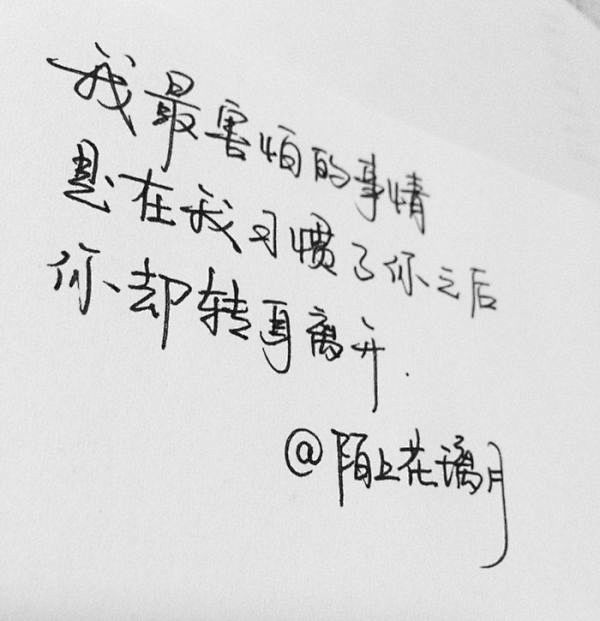 我最害怕的事情
是在我习惯了你之后
你却转身离开.
@陌上花璃月